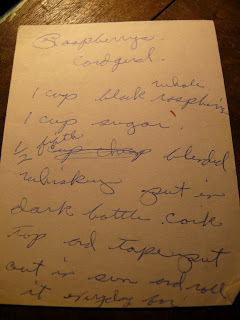 Raspberrys
Cordgerd.
1 cup black whole raspberis
1 cup sugar.
1/2 fifth cup cheap blended
whiskey put in
dark bottle. cork
top and tape put
out in sun and roll
it everyday for